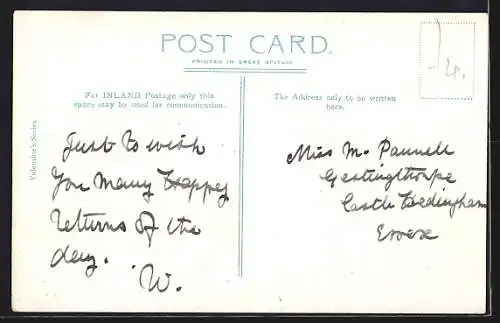 POST CARD.
PRINTED IN GREAT BRITAIN
For INLAND Postage only this
space may be used for communication.
The Address only to be written
here.
Valentine's Series
Just to wish
You Many Happy
returns of the
day.
W.
Miss M. Pannell
Gestingthorpe
Castle Hedingham
Essex